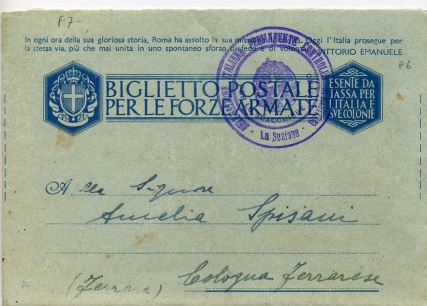 F7-
In ogni ora della sua gloriosa storia, Roma ha assolto la sua missione di Oggi l'Italia prosegue per
la stessa via, più che mai unita in uno spontaneo sforzo di fede e di volontà. VITTORIO EMANUELE
P6
BIGLIETTO POSTALE
PER LE FORZE ARMATE
ESENTE DA
TASSA PER
L'ITALIA E
SVE COLONIE
- La Sezione -
Alla Signora
Amelia Spisani
(Ferrara) Cologna Ferrarese